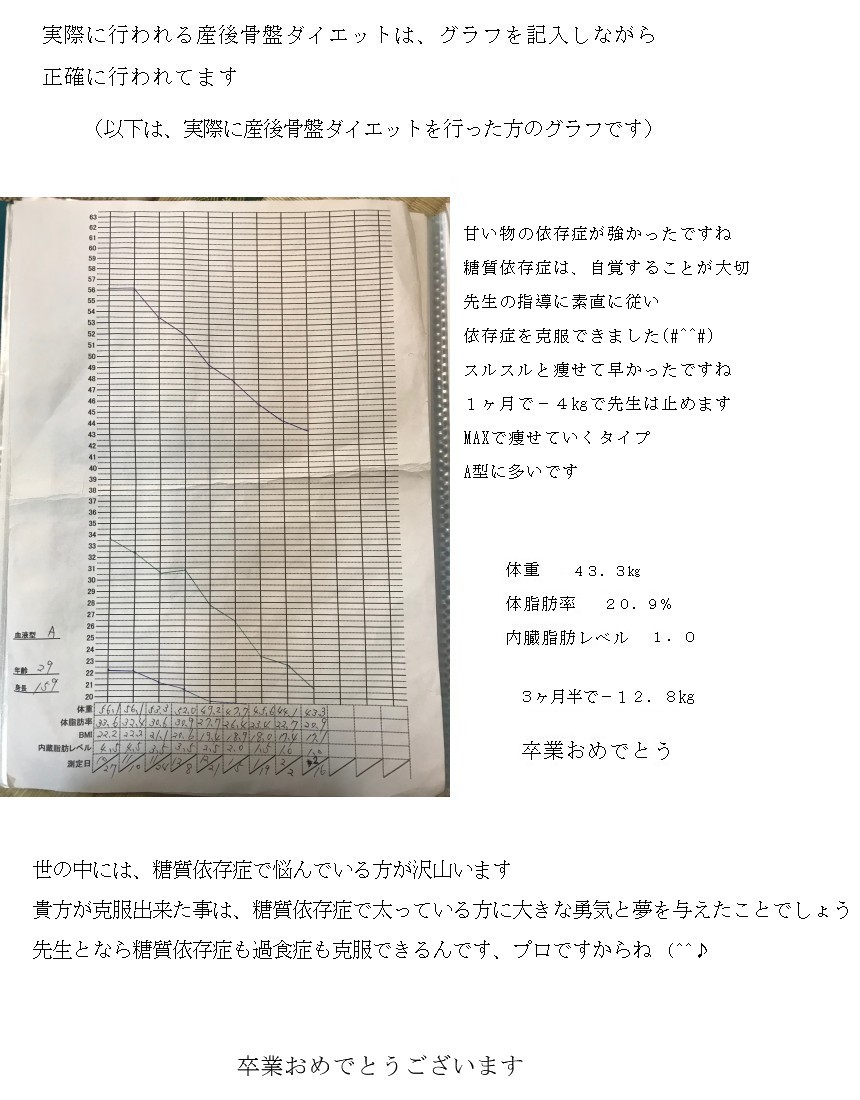 実際に行われる産後骨盤ダイエットは、グラフを記入しながら
正確に行われてます
（以下は、実際に産後骨盤ダイエットを行った方のグラフです）
63
62
61
60
59
58
57
56
55
54
53
52
51
50
49
48
47
46
45
44
43
42
41
40
39
38
37
36
35
34
33
32
31
30
29
28
27
26
25
24
23
22
21
20
血液型 A
年齢 29
身長 159
体重 56.1 56.1 53.3 52.0 49.2 47.7 45.6 44.1 43.3
体脂肪率 33.6 32.4 30.6 30.9 27.7 26.4 23.4 22.7 20.9
BMI 22.2 22.2 21.1 20.6 19.4 18.9 18.0 17.4 17.1
内蔵脂肪レベル 4.5 4.5 3.5 3.5 2.5 2.0 1.5 1.0
測定日 10/27 11/10 11/24 12/8 12/21 1/5 1/19 2/2 2/16
甘い物の依存症が強かったですね
糖質依存症は、自覚することが大切
先生の指導に素直に従い
依存症を克服できました(#^^#)
スルスルと痩せて早かったですね
１ヶ月で－４㎏で先生は止めます
MAXで痩せていくタイプ
A型に多いです
体重　４３．３㎏
体脂肪率　２０．９％
内臓脂肪レベル　１．０
３ヶ月半で－１２．８㎏
卒業おめでとう
世の中には、糖質依存症で悩んでいる方が沢山います
貴方が克服出来た事は、糖質依存症で太っている方に大きな勇気と夢を与えたことでしょう
先生となら糖質依存症も過食症も克服できるんです、プロですからね (^^♪
卒業おめでとうございます